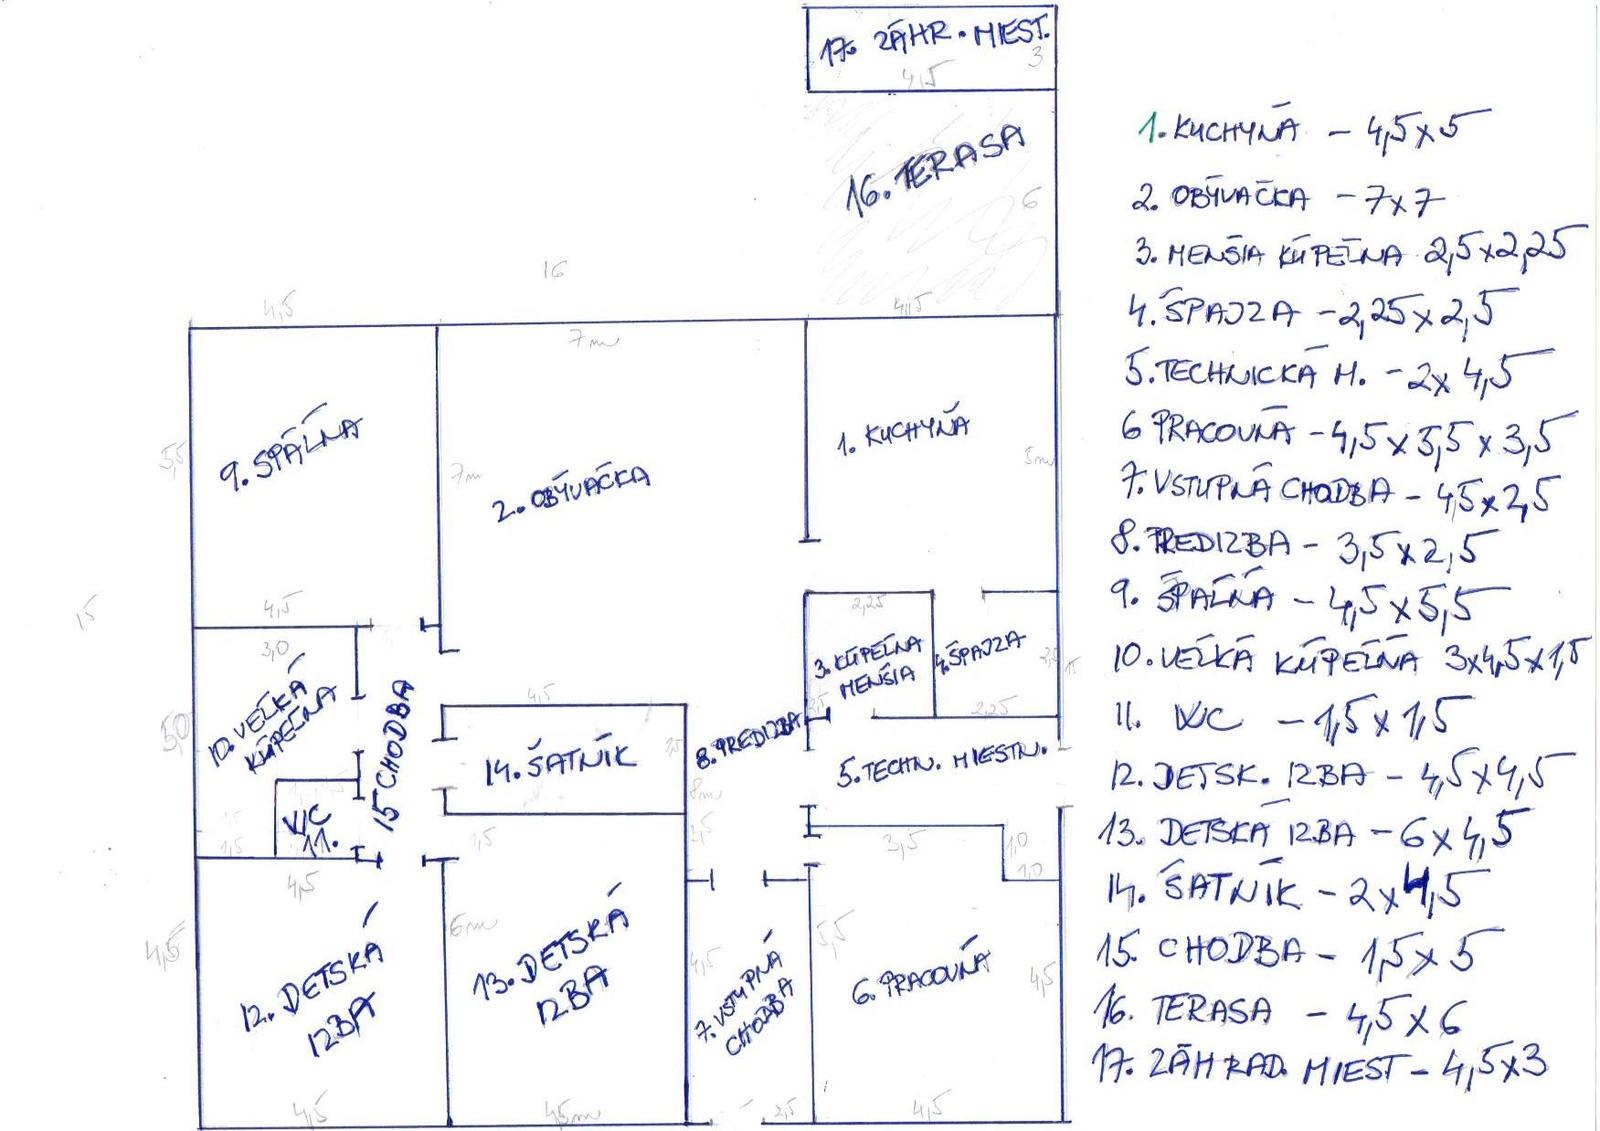 17. ZÁHR. MIEST.
4,5
3
16. TERASA
6
16
4,5
7m
4,5
9. SPÁLŇA
5,5
7m
2. OBÝVAČKA
1. KUCHYŇA
5m
15
4,5
3,0
10. VEĽKÁ
KÚPEĽŇA
5,0
15 CHODBA
WC
11.
1,5
1,5
4,5
4,5
14. ŠATNÍK
8. PREDIZBA
8m
3,5
2,25
3. KÚPEĽŇA
MENŠIA
2,5
4. ŠPAJZA
2,5
2,25
15
5. TECHN. MIESTN.
3,5
1,0
1,0
4,5
12. DETSKÁ
IZBA
4,5
6m
13. DETSKÁ
IZBA
4,5m
4,5
7. VSTUPNÁ
CHODBA
2,5
5,5
6. PRACOVŇA
4,5
4,5
1. KUCHYŇA - 4,5x5
2. OBÝVAČKA - 7x7
3. MENŠIA KÚPEĽŇA 2,5x2,25
4. ŠPAJZA - 2,25x2,5
5. TECHNICKÁ M. - 2x4,5
6 PRACOVŇA - 4,5x5,5x3,5
7. VSTUPNÁ CHODBA - 4,5x2,5
8. PREDIZBA - 3,5x2,5
9. ŠPÁLŇA - 4,5x5,5
10. VEĽKÁ KÚPEĽŇA 3x4,5x1,5
11. WC - 1,5x1,5
12. DETSK. IZBA - 4,5x4,5
13. DETSKÁ IZBA - 6x4,5
14. ŠATNÍK - 2x4,5
15. CHODBA - 1,5x5
16. TERASA - 4,5x6
17. ZÁHRAD. MIEST - 4,5x3